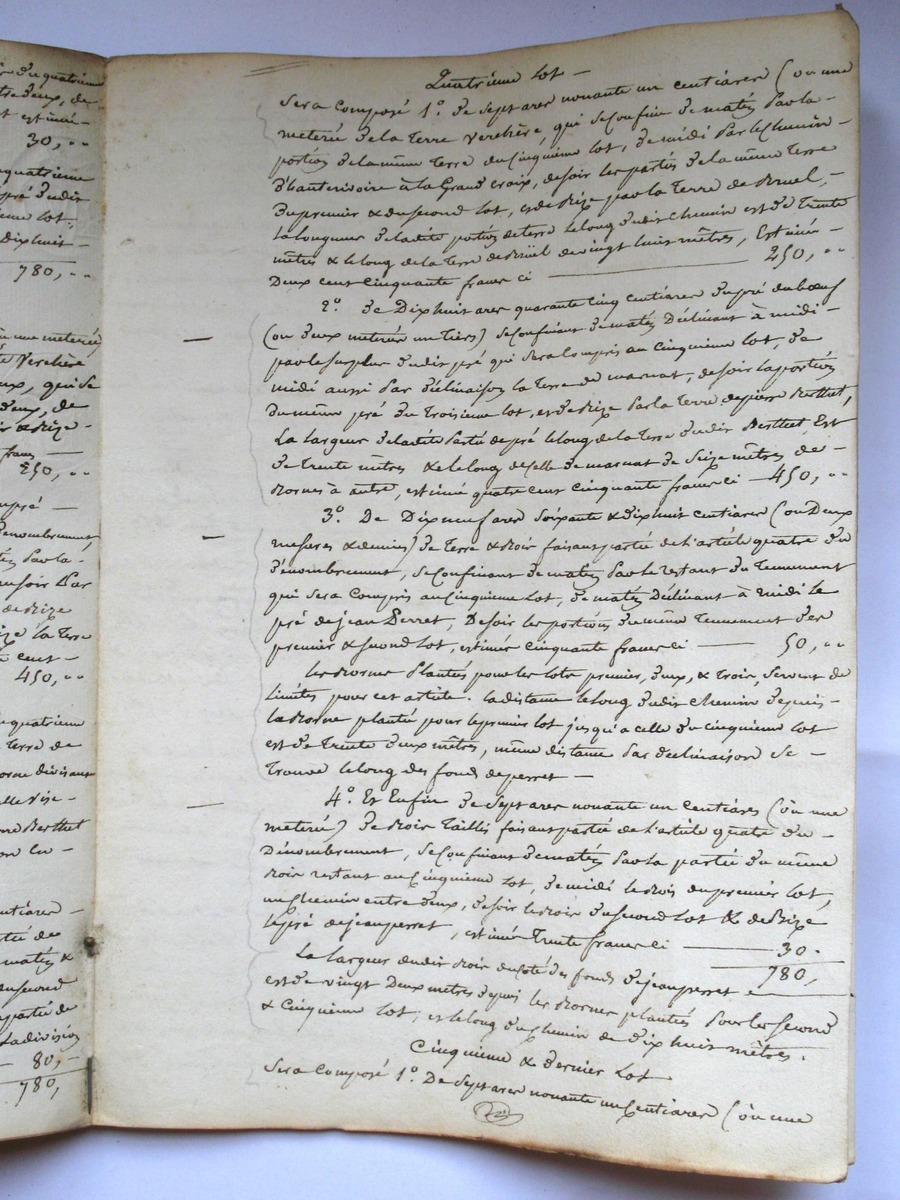 quatrième
deux, de
est estimé
30, "
quatrième
pré dudit
lot
Dixhuit
780, "
une meterée
Verchère
deux, qui se
deux, de
& Bize
francs
250, "
pré
Dénombrement
par la
soir Par
de Bize
Bize la terre
cent
450, "
quatrième
Terre de
borne divisant
elle vise
Berthet
centiares
partie de
matin &
second
partie de
La division
80, "
780,
Quatrième Lot
Sera Composé 1° de Sept ares nonante un centiares (ou une
meterée de la Terre Verchère, qui se Confine de matin Par la
portion de la même terre du Cinquième lot, de midi Par le Chemin
D'hauterivoire à la Grand croix, de soir les parties de la même Terre
du premier & du second lot, et de Bize par la Terre de Bruel,
La longueur de la dite portion de terre le long du dit chemin est de Trente
mètres & le long de la Terre de Bruël de vingt huit mètres, Estimée
Deux cent Cinquante francs ci 250, "
2° de Dixhuit ares quarante Cinq centiares du pré du boeuf
(ou deux meterées un tiers) se Confinant de matin Déclinant à midi
par le surplus du dit pré qui sera Compris au Cinquième lot, de
midi aussi Par déclinaison la terre de marnat, de soir la portion
du même pré du Troisième lot, et de Bize Par la Terre de pierre Berthet,
La largeur de la dite Partie de pré le long de la Terre du dit Berthet Est
de Trente mètres & le long de celle de marnat de Seize mètres de
Bornes à autre, estimé quatre cent cinquante francs ci 450, "
3° De Dix neuf ares Soixante & dix huit centiares (ou Deux
mesures & demies) de Terre & Bois faisant partie de l'article quatre du
dénombrement, se Confinant de matin Par le restant du Tenement
qui sera Compris au Cinquième lot, de matin Déclinant à midi le
pré de jean Perret, De soir les portions du même Tenement des
premier & second lot, estimées cinquante francs ci 50, "
les Bornes Plantées pour les lots premier, deux, & trois, servent de
limites pour cet article. La distance le long du dit Chemin depuis
la Borne plantée pour le premier lot jusqu'a celle du cinquième lot
est de Trente deux mètres, même distance Par déclinaison se
Trouve le long des fonds de perret
4° Et Enfin de Sept ares nonante un Centiares (ou une
meterée) de Bois Taillis faisant partie de l'article quatre du
Dénombrement, se Confinant de matin Par la partie du même
Bois restant au Cinquième lot, de midi le Bois du premier lot,
un Chemin entre deux, de soir le Bois du second lot & de Bize
le pré de jean perret, estimée Trente francs ci 30
780,
La largeur du dit Bois du coté des fonds de jean perret
est de vingt Deux mètres depuis les Bornes plantées Pour les second
& Cinquième lot, et le long du Chemin de dix huit mètres.
Cinquième & dernier Lot
Sera Composé 1° De Sept ares nonante un Centiares (ou une